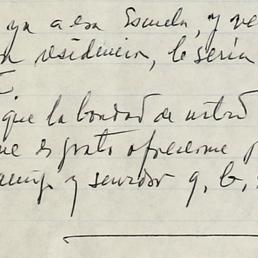 ya a esa Escuela, y ve
residencia, le sería
que la bondad de usted
me es grato ofrecerme
amigo y servidor q, b,